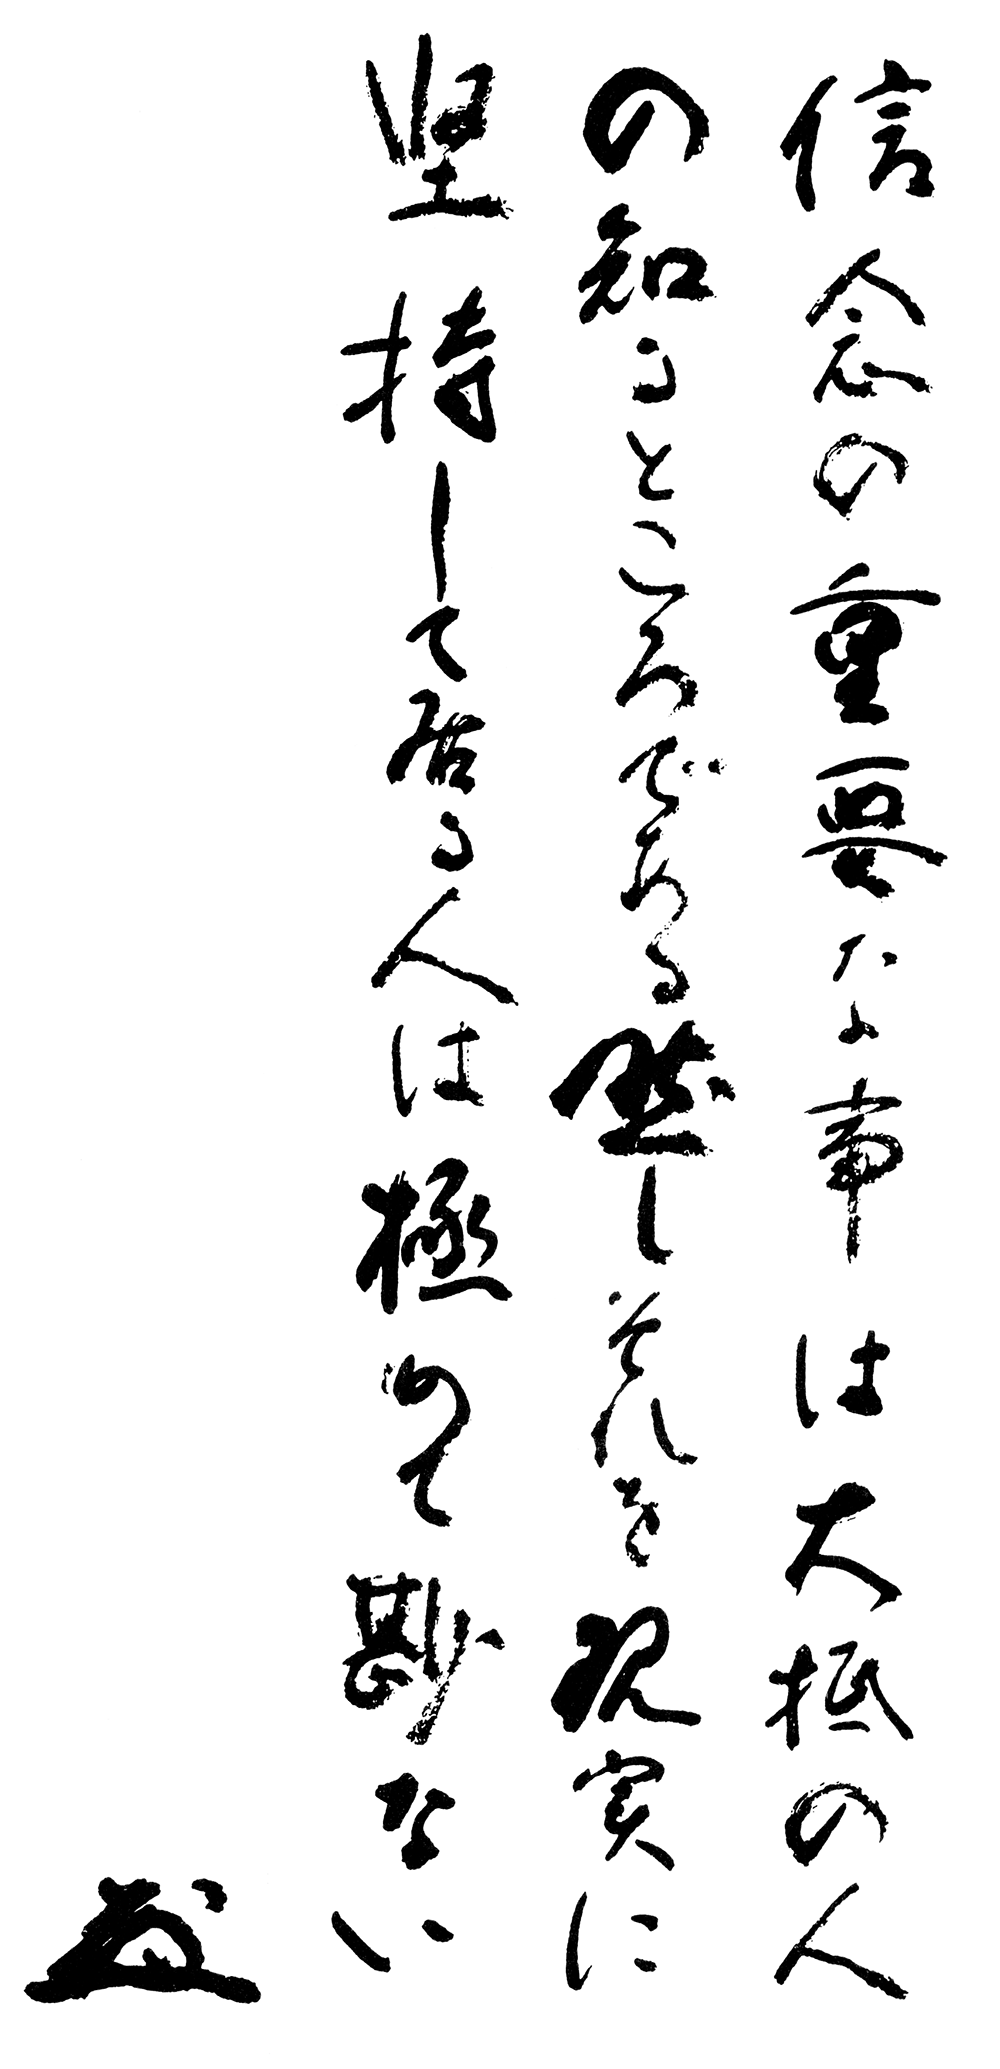 信念の重要な事は大抵の人
の知るところである然しそれを現実に
堅持して居る人は極めて尠ない